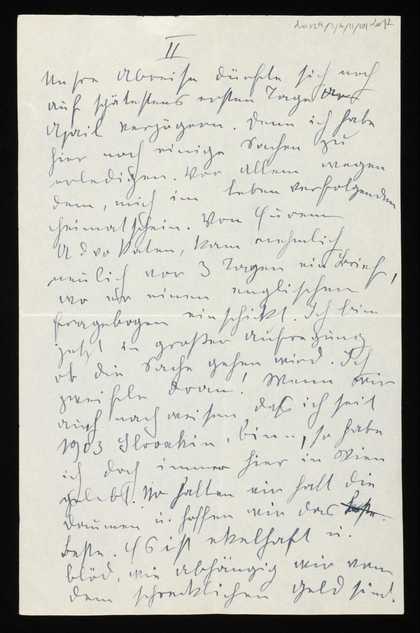 II
Unsre Abreise dürfte sich noch
auf spätestens ersten Tage des
April verzögern. Denn ich habe
hier noch einige Sachen zu
erledigen. Vor allem wegen
dem, mich im Leben verfolgenden
Heimatschein. Von Eurem
Advokaten, kam nehmlich
neulich vor 3 Tagen ein Brief,
wo er einen englischen
Fragebogen einschickt. Ich bin
jetzt in großer Aufregung
ob die Sache gehen wird. Ich
zweifle dran! Wenn wir
auch nachweisen, daß ich seit
1903 Slovakin bin, so habe
ich doch immer hier in Wien
gelebt. So halten wir halt die
Daumen u. hoffen wir das
Beste. Es ist ekelhaft u.
blöd, wie abhängig wir vom
dem schrecklichen Geld sind.